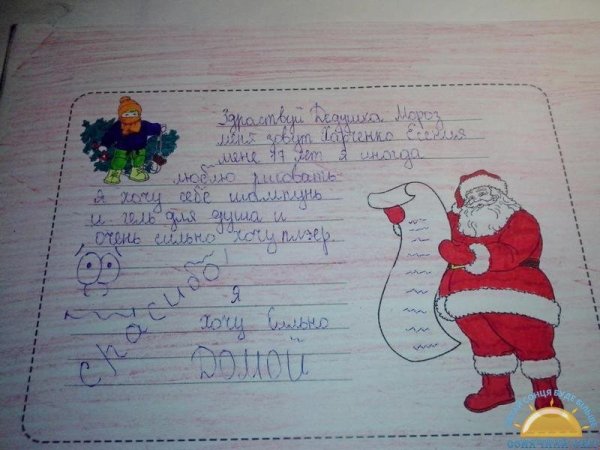 Здраствуй Дедушка Мороз
меня зовут Харченко Есения
мене 11 лет я иногда
люблю рисовать
я хочу себе шампунь
и гель для душа и
очень сильно хочу плэер
спасибо!
я
хочу сильно
ДОМОЙ
СОНЦЯ БУДЕ БІЛЬШЕ